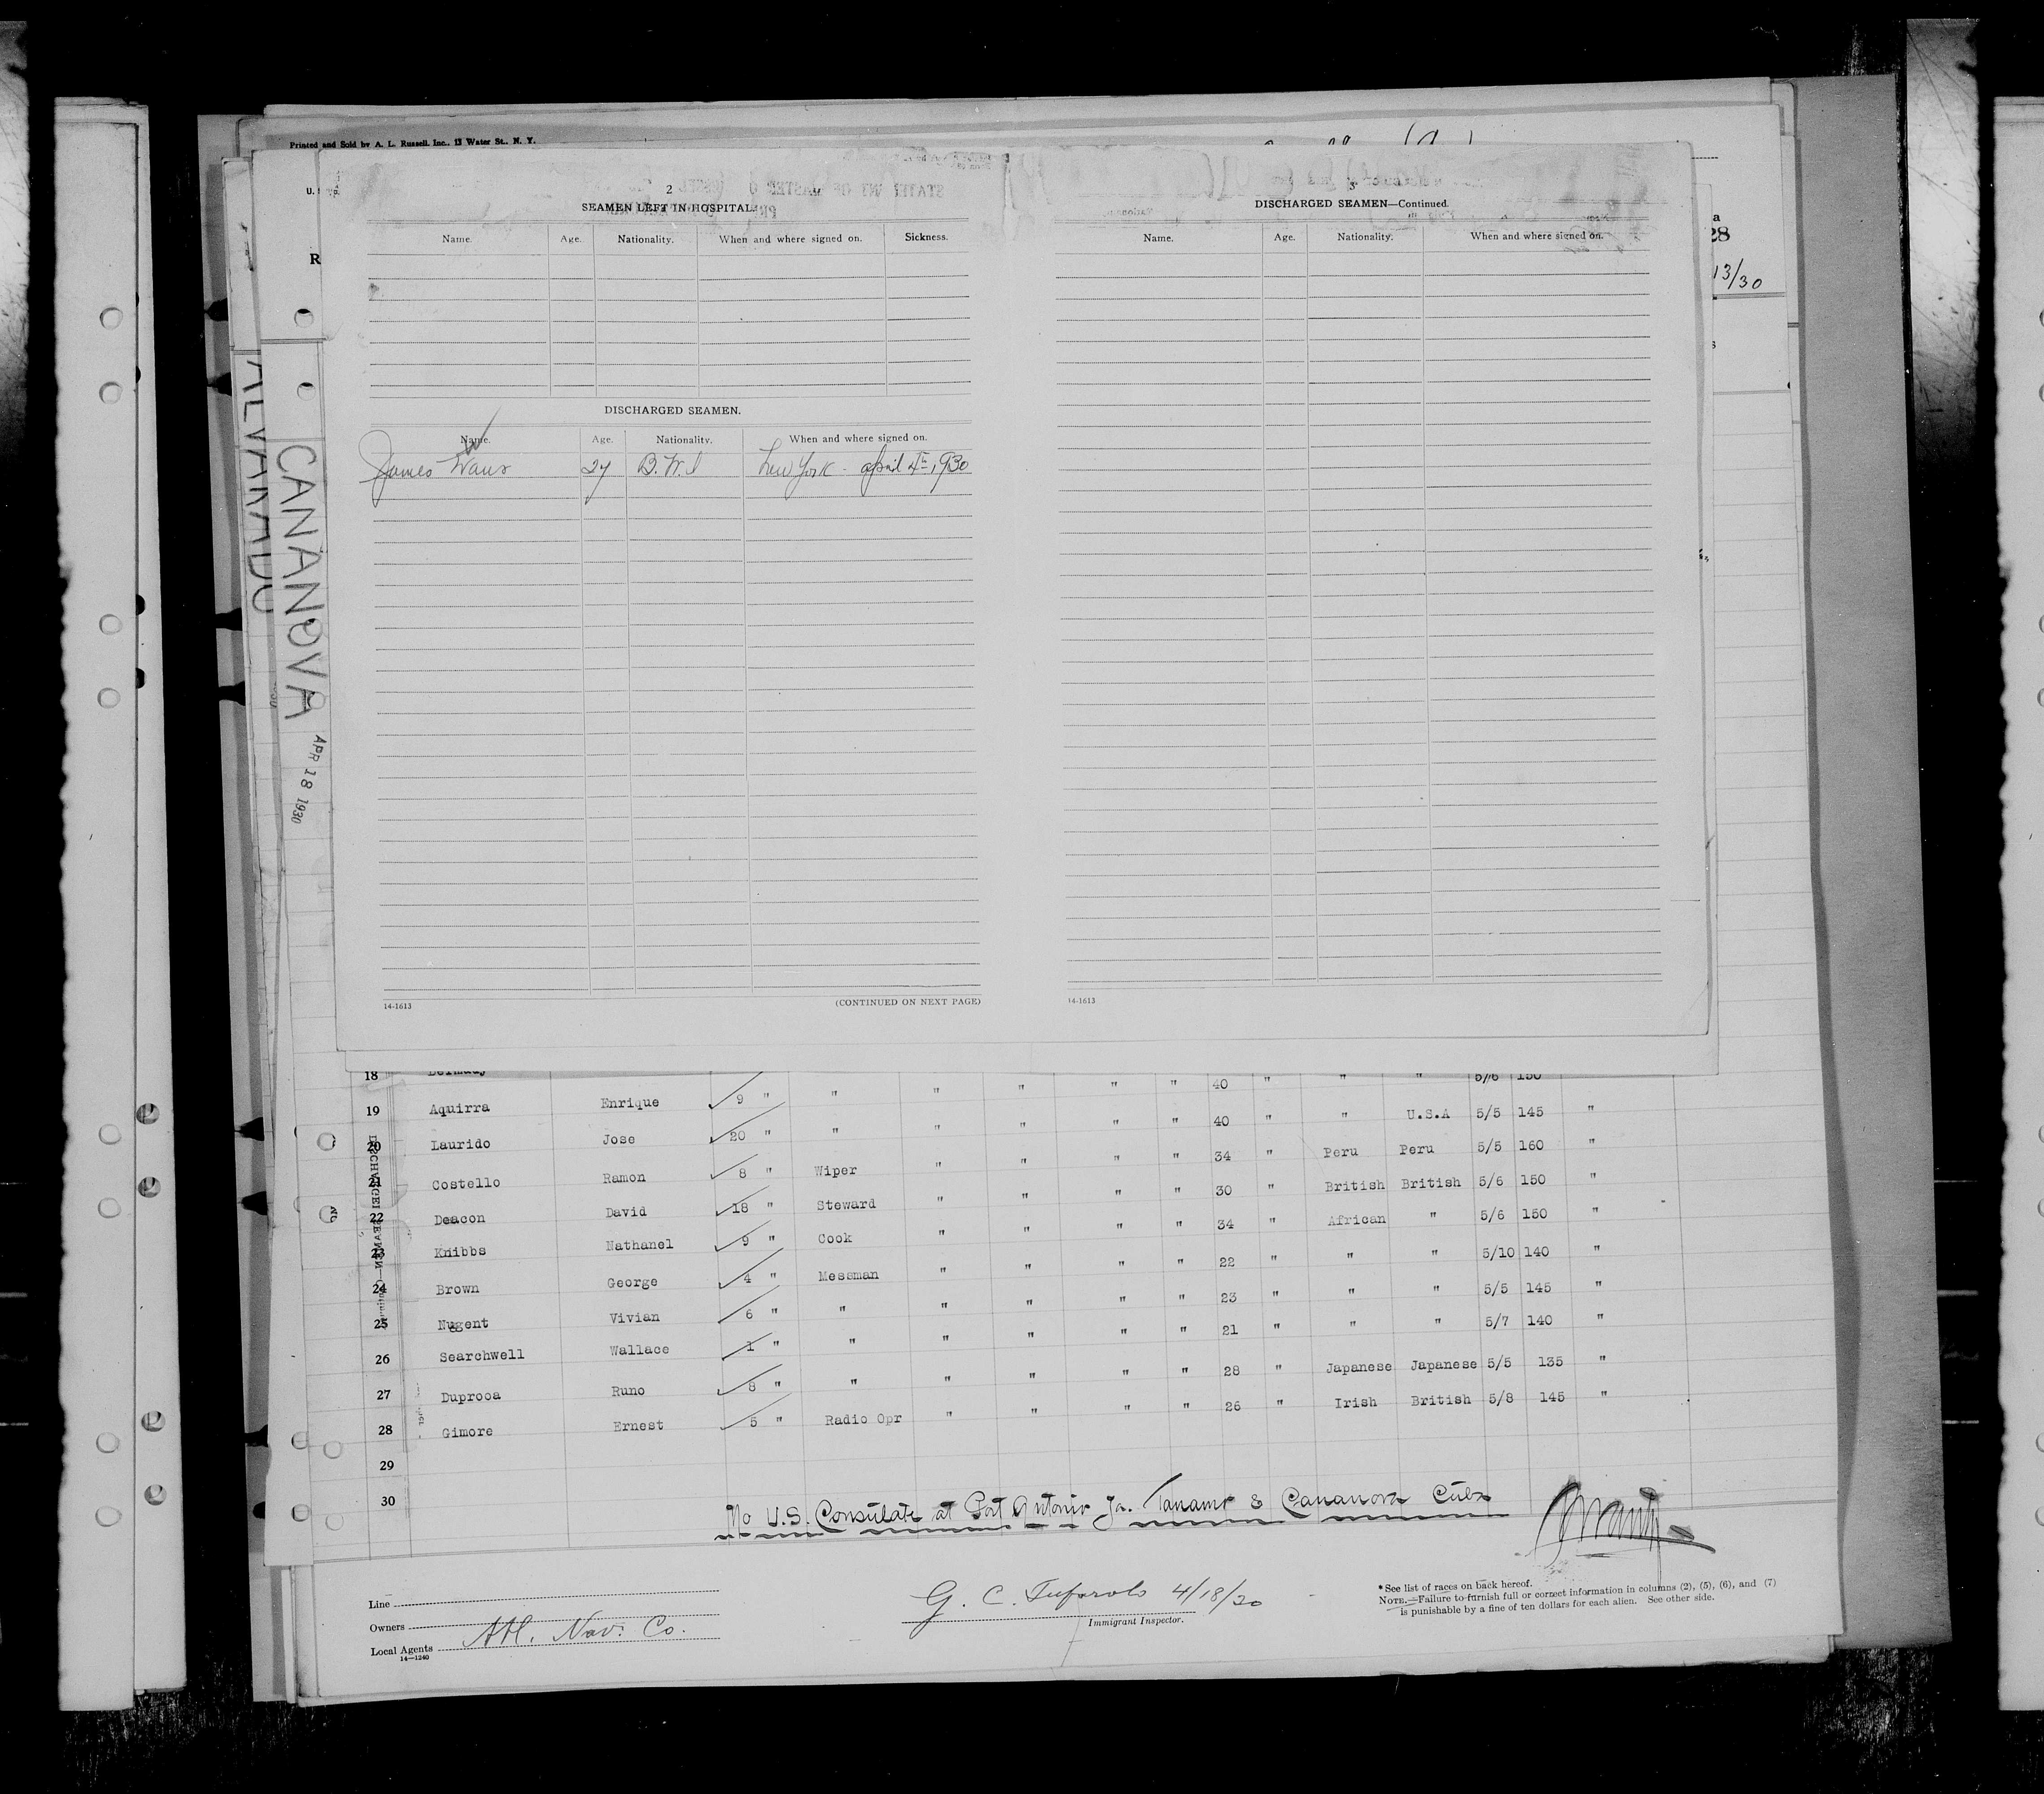 Printed and Sold by A. L. Russell, Inc., 13 Water St., N. Y.
13/30
2
SEAMEN LEFT IN HOSPITAL.
Name. Age. Nationality. When and where signed on. Sickness.
DISCHARGED SEAMEN.
Name. Age. Nationality. When and where signed on.
James 27 B.W.I New York - april 4th, 1930
14-1613 (CONTINUED ON NEXT PAGE)
3
DISCHARGED SEAMEN—Continued.
Name. Age. Nationality. When and where signed on.
14-1613
ALVARADO
CANANOVA APR 18 1930
18 " " " " 40 " " " 5/6 150
19 Aquirra Enrique 9 " " " " " " 40 " " U.S.A 5/5 145 "
20 Laurido Jose 20 " " " " " " 34 " Peru Peru 5/5 160 "
21 Costello Ramon 8 " Wiper " " " " 30 " British British 5/6 150 "
22 Deacon David 18 " Steward " " " " 34 " African " 5/6 150 "
23 Knibbs Nathanel 9 " Cook " " " " 22 " " " 5/10 140 "
24 Brown George 4 " Messman " " " " 23 " " " 5/5 145 "
25 Nugent Vivian 6 " " " " " " 21 " " " 5/7 140 "
26 Searchwell Wallace 1 " " " " " " 28 " Japanese Japanese 5/5 135 "
27 Duprooa Runo 8 " " " " " " 26 " Irish British 5/8 145 "
28 Gimore Ernest 5 " Radio Opr " " " "
29
30
No U.S. Consulate at Port Antonio Ja. Tanamo & Cananova Cuba
Line
Owners
Local Agents Atl. Nav. Co.
14—1240
G. C. 4/18/30
Immigrant Inspector.
*See list of races on back hereof.
NOTE.—Failure to furnish full or correct information in columns (2), (5), (6), and (7)
is punishable by a fine of ten dollars for each alien. See other side.